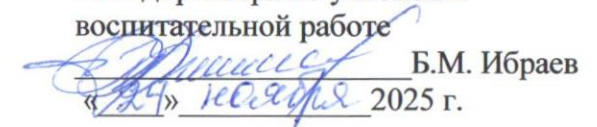 воспитательной работе
Б.М. Ибраев
«24» ноября 2025 г.